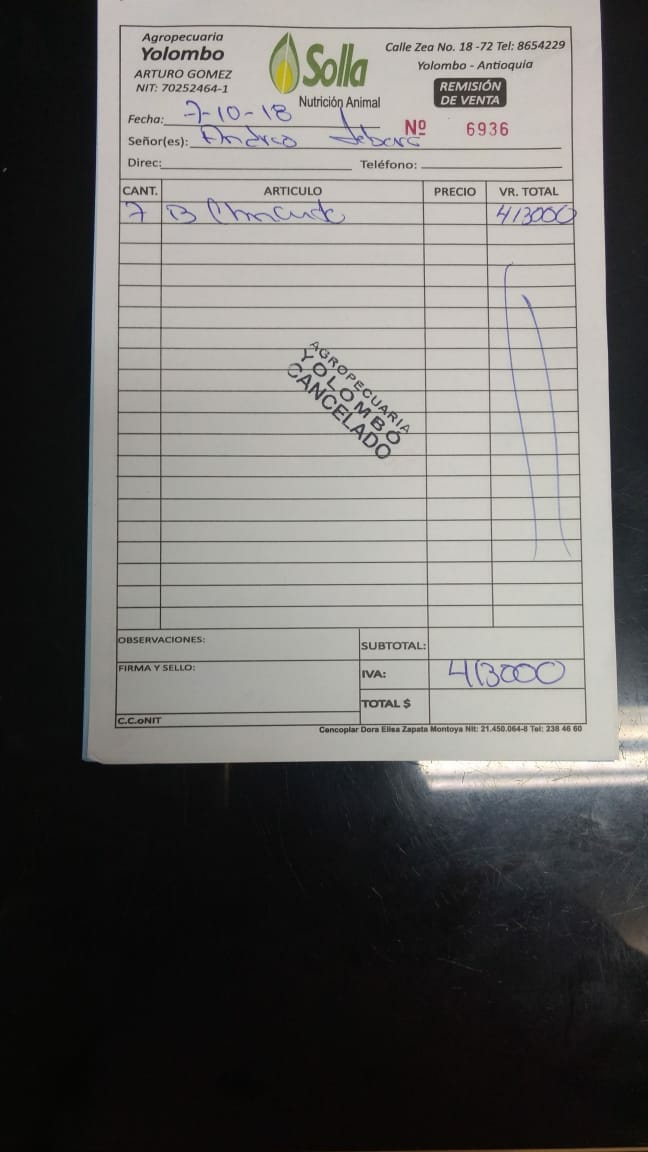 Agropecuaria
Yolombo
ARTURO GOMEZ
NIT: 70252464-1
Solla
Nutrición Animal
Calle Zea No. 18 -72 Tel: 8654229
Yolombo - Antioquia
REMISIÓN
DE VENTA
Fecha: 7-10-18
Nº 6936
Señor(es):
Direc: Teléfono:
CANT. ARTICULO PRECIO VR. TOTAL
7 B 413000
AGROPECUARIA
YOLOMBÓ
CANCELADO
OBSERVACIONES:
SUBTOTAL:
FIRMA Y SELLO:
IVA: 413000
TOTAL $
C.C.oNIT
Cencoplar Dora Elisa Zapata Montoya Nit: 21.450.064-8 Tel: 238 46 60